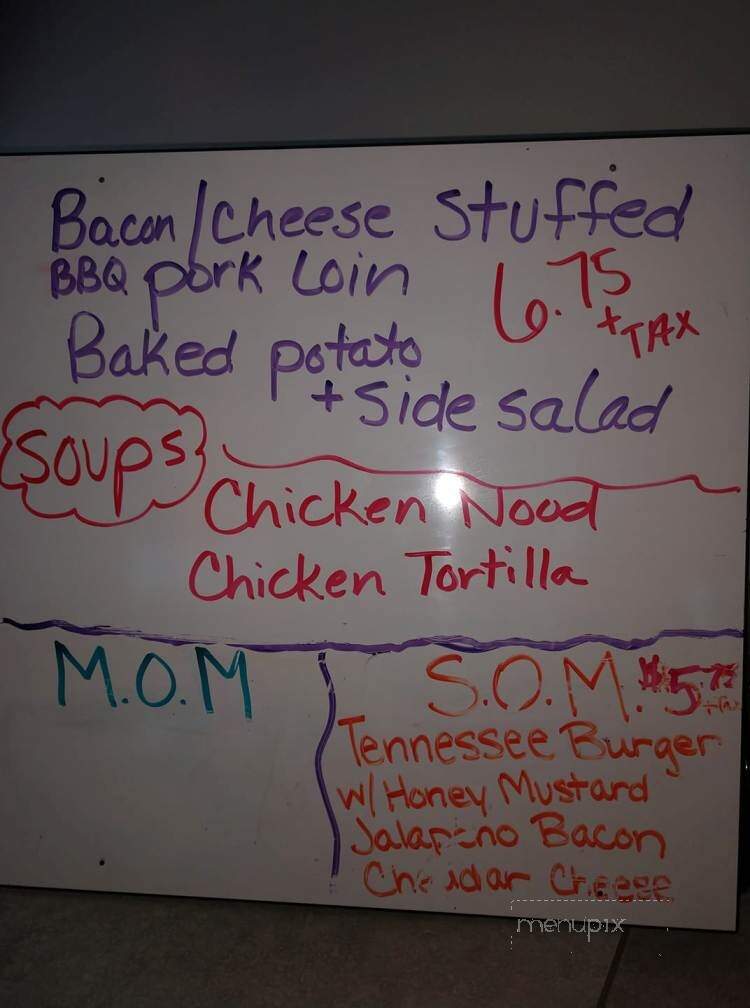 Bacon/Cheese Stuffed
BBQ pork Loin
6.75
+ TAX
Baked potato
+ side salad
Soups
Chicken Nood
Chicken Tortilla
M.O.M
S.O.M. $5
Tennessee Burger
w/ Honey Mustard
Jalapeno Bacon
Cheddar Cheese
menupix